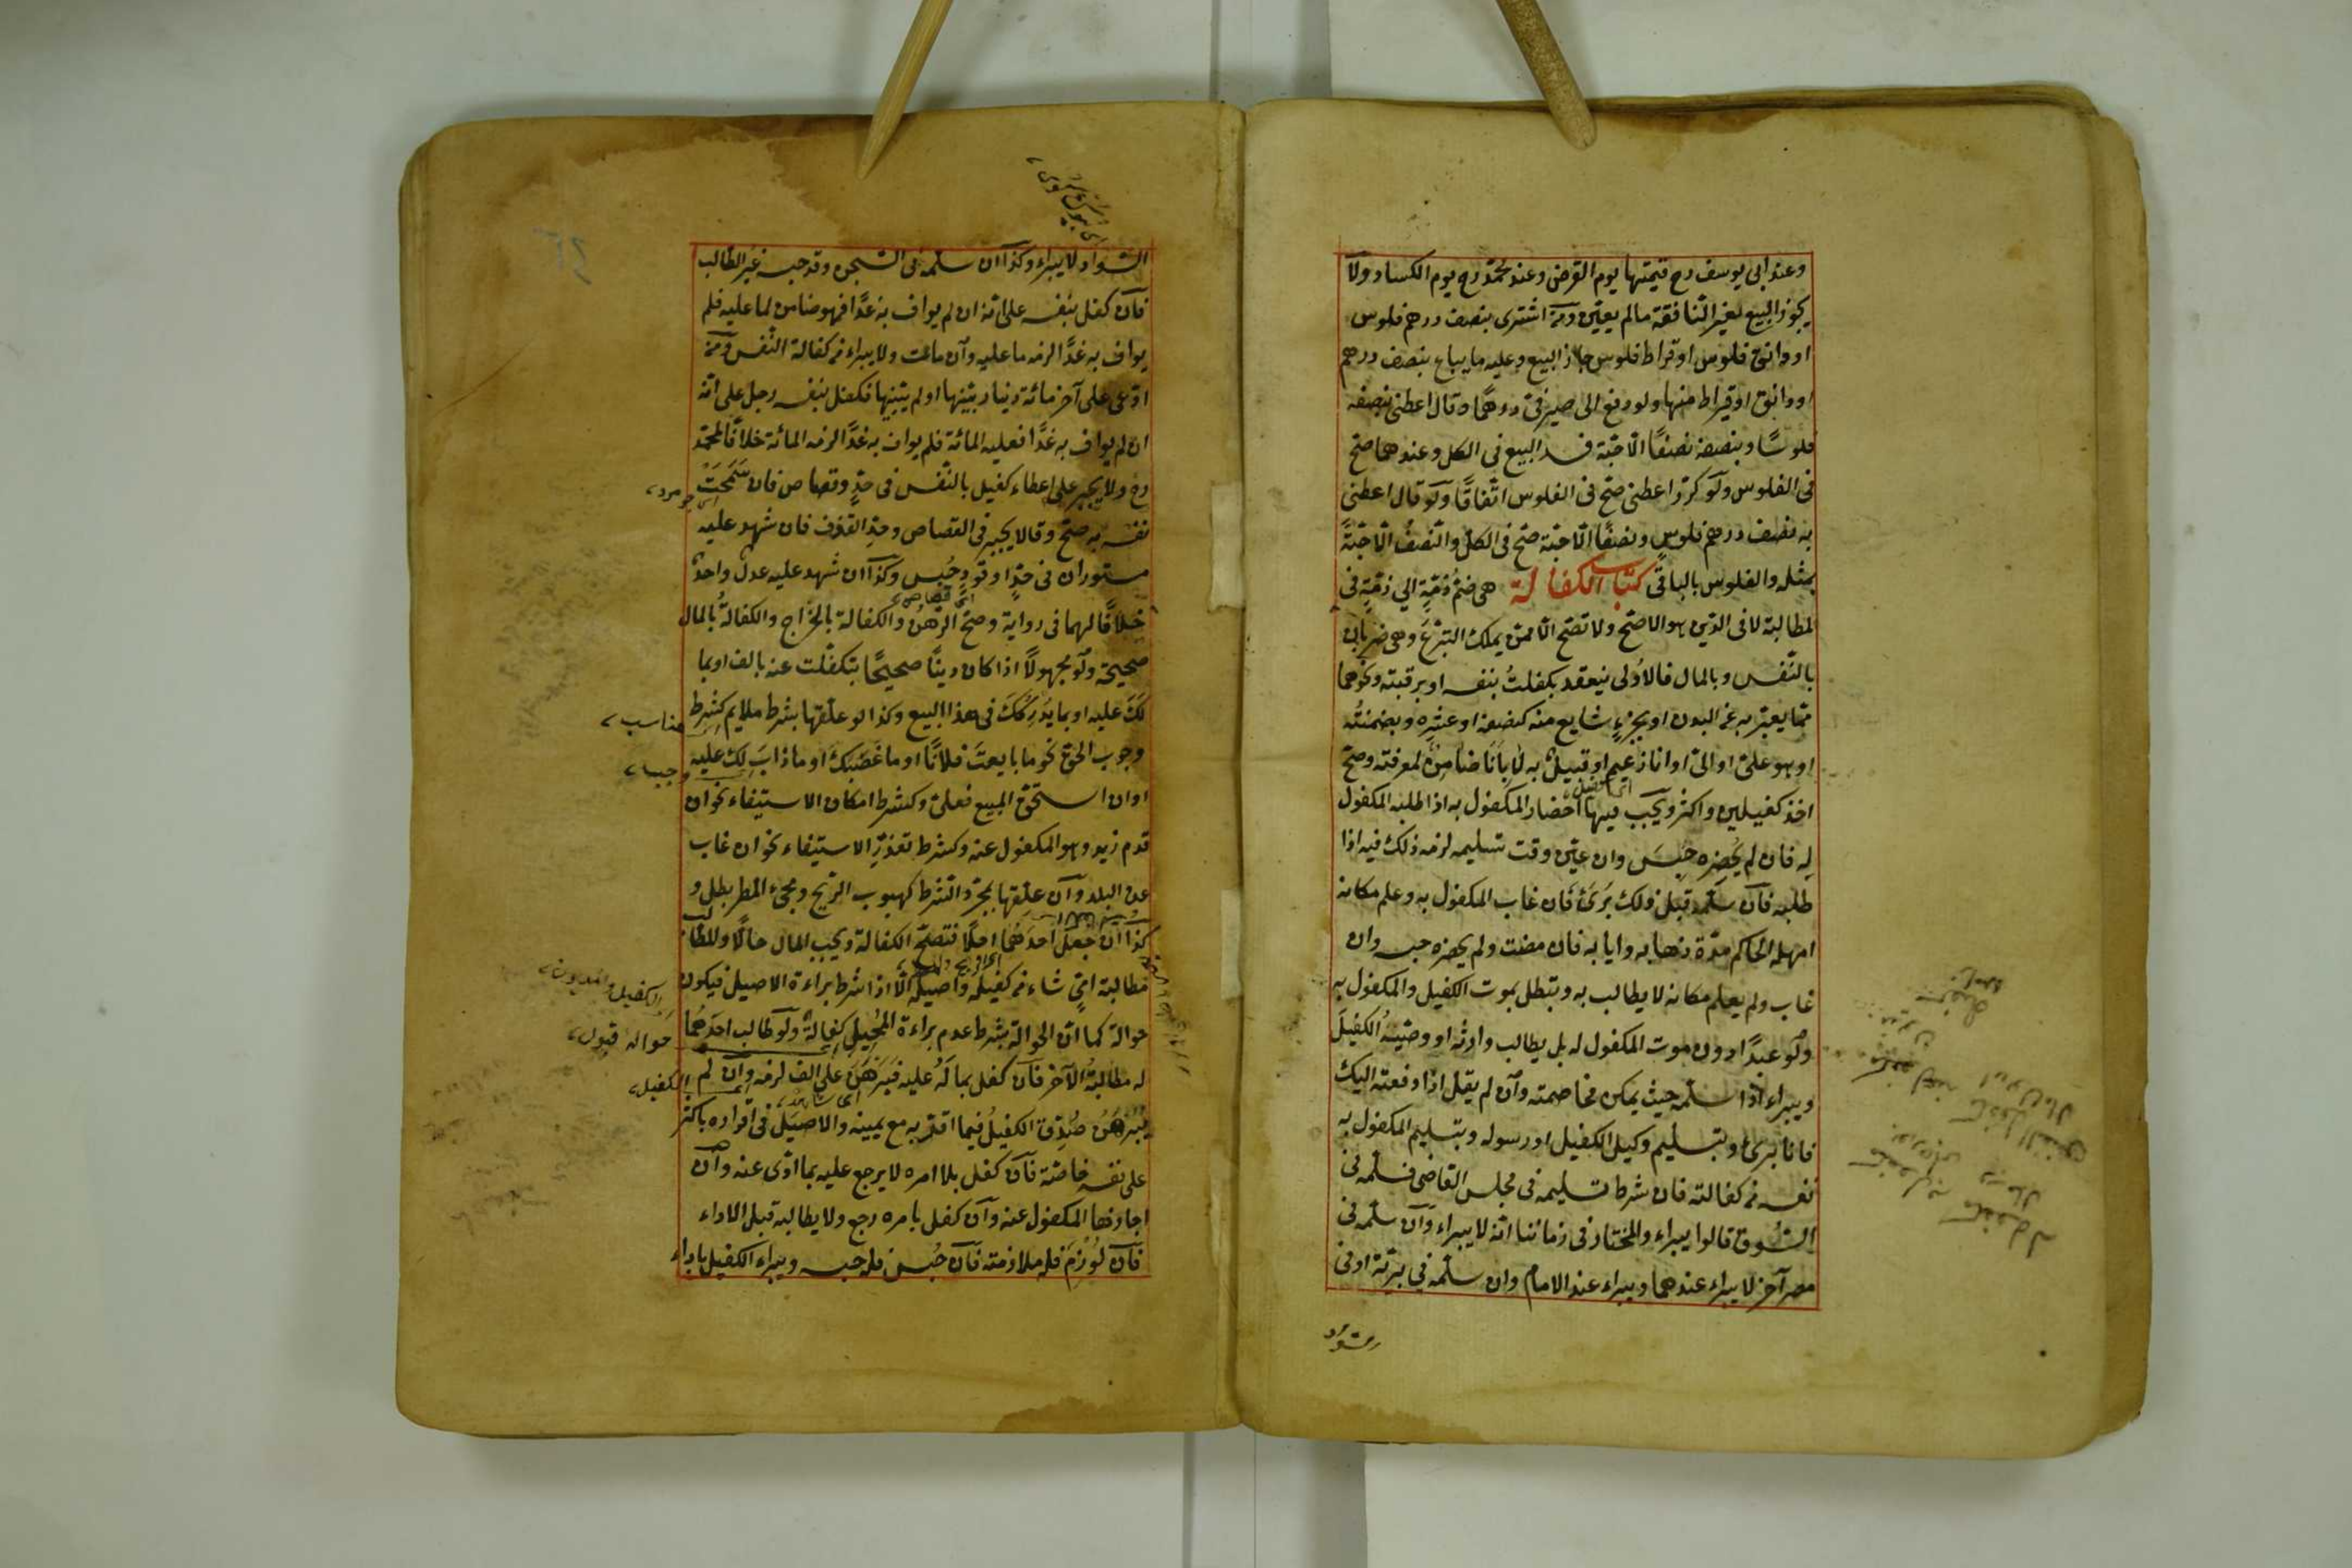 وعند ابى يوسف رح قيمتها يوم القرض وعند محمد رح يوم الكساد ولا
يجوز البيع بغير النافقة مالم يعيّن ومن اشترى بنصف درهم فلوس
او دانق فلوس او قراط فلوس جاز البيع وعليه ما يباع بنصف درهم
او دانق او قيراط منها ولو دفع الى صيرفىّ درهمًا وقال اعطنى بنصفه
فلوسًا وبنصفه نصفًا الّا حبّة فسد البيع فى الكل وعندهما صحّ
فى الفلوس ولو كرّر اعطنى صحّ فى الفلوس اتّفاقًا ولو قال اعطنى
به نصف درهم فلوسٍ ونصفًا الّا حبّة صحّ فى الكلّ والنّصفُ الّا حبّةً
بمثله والفلوس بالباقى كتاب الكفالة هى ضمّ ذمّةٍ الى ذمّةٍ فى
المطالبة لا فى الدّين هو الاصحّ ولا تصحّ الّا ممّن يملك التبرّعَ وهى ضربان
بالنّفس وبالمال فالاُولى ينعقد بكفلتُ بنفسه او برقبته ونحوهما
ممّا يعبّر به عن البدن او بجزءٍ شايع منه كنصفه او عشره وبضمنتُه
او هو علىّ او الىّ او انا زعيم او قبيلٌ به لا بأنا ضامنٌ لمعرفته وصحّ
اخذ كفيلين واكثر ويجب فيها احضار المكفول به اذا طلبه المكفول
له فان لم يُحضره حُبِسَ وان عيّن وقت تسليمه لزمه ذلك فيه اذا
طلبه فان سلّمه قبل ذلك بَرُئَ فان غاب المكفول به وعلم مكانه
امهله الحاكم مدّة ذهابه وايابه فان مضت ولم يحضره حبسه وان
غاب ولم يعلم مكانه لا يطالب به وتبطل بموت الكفيل والمكفول به
ولو عبدًا دون موت المكفول له بل يطالب وارثُه او وصيّتُه الكفيلَ
ويبراء اذا سلّمه حيث يمكن مخاصمته وان لم يقل اذا دفعته اليك
فانا برئٌ وبتسليم وكيل الكفيل او رسوله وبتسليم المكفول به
نفسه من كفالته فان شرط تسليمه فى مجلس القاضى فسلّمه فى
السّوق قالوا يبراء والمختار فى زماننا انّه لا يبراء وان سلّمه فى
مصر آخر لا يبراء عندهما ويبراء عند الامام وان سلّمه فى بريّة او فى
السّواد لا يبراء وكذا ان سلّمه فى السّجن وقد حبسه غير الطالب
فان كفل بنفسه على انّه ان لم يواف به غدًا فهو ضامن لما عليه فلم
يواف به غدًا لزمه ما عليه وان مات ولا يبراء من كفالة النّفس ومن
ادّعى على آخر مائة دينار بيّنها او لم يبيّنها فكفل بنفسه رجل على انّه
ان لم يواف به غدًا فعليه المائة فلم يواف به غدًا لزمه المائة خلافًا لمحمّد
رح ولا يجبر على اعطاء كفيل بالنّفس فى حدٍّ وقصاص فان سَمَحَتْ
نفسه به صحّ وقالا يجبر فى القصاص وحدّ القذف فان شهد عليه
مستوران فى حدٍّ او قَوَدٍ حُبس وكذا ان شهد عليه عدلٌ واحدٌ
اى قصاص
خلافًا لهما فى رواية وصحّ الرّهنُ والكفالة بالخراج والكفالةُ بالمال
صحيحة ولو مجهولًا اذا كان دينًا صحيحًا بتكفّلت عنه بالف او بما
لكَ عليه او بما يَدركُكَ فى هذا البيع وكذا لو علّقها بشرط ملايم كشرط
مناسب
وجوب الحقّ نحو ما بايعتَ فلانًا او ما غَصَبَكَ او ما ذابَ لك عليه
او ان استحقّ المبيع فعلىّ وكشرط امكان الاستيفاء نحو ان
قدم زيد وهو المكفول عنه وكشرط تعذّر الاستيفاء نحو ان غاب
عن البلد وان علّقها بمجرّد الشّرط كهبوب الرّيح ومجىء المطر بطل و
كذا ان جعلَ احدَهُما اجلًا فتصحّ الكفالة ويجب المال حالًّا وللطالب
مطالبة اىٍّ شاء من كفيله واصيله الّا اذا شرط براءة الاصيل فيكون
حوالة كما انّ الحوالة بشرط عدم براءة المُحيل كفالةٌ ولو طالب احدَهُما
له مطالبةُ الآخر فان كفل بما لَه عليه فبَرْهَنَ على الف لزمه وان لم
الكفيل
يُبَرْهِنْ صُدِّقَ الكفيلُ فيما اقرّ به مع يمينه والاصيلُ فى اقراره باكثر
على نفسه خاصّة فان كفل بلا امره لا يرجع عليه بما ادّى عنه وان
اجازها المكفول عنه وان كفل بامره رجع ولا يطالبه قبل الاداء
فان لُوزِمَ فله ملازمته فان حُبس فله حبسه ويبراء الكفيل باداء